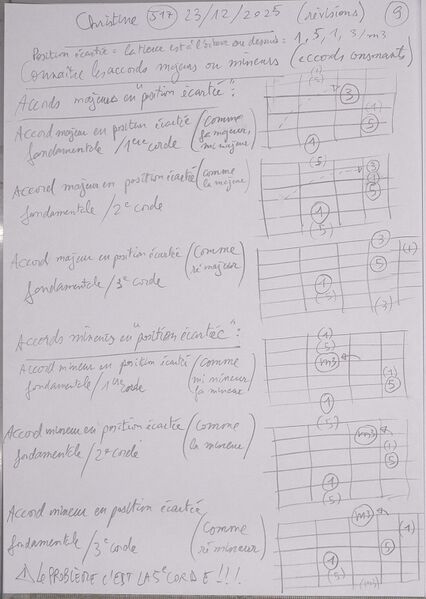 Christine 517 23/12/2025 (révisions) 9
Position écartée = la tierce est à l'octave au dessus = 1, 5, 1, 3/m3
Connaître les accords majeurs ou mineurs (accords consonants)
Accords majeurs en "position écartée":
(1)
3
Accord majeur en position écartée (comme
fondamentale / 1ère corde fa majeur,
mi majeur)
(1)
5
1
(5)
Accord majeur en position écartée (comme
la majeur)
fondamentale / 2e corde
3
1
5
1
(5)
3
(1)
Accord majeur en position écartée (comme
ré majeur)
fondamentale / 3e corde
5
1
(5)
(3)
Accords mineurs en "position écartée":
(1)
(5)
m3
Accord mineur en position écarté (comme
mi mineur
fondamentale / 1ère corde
la mineur)
(1)
5
1
(5)
Accord mineur en position écartée (comme
la mineur)
fondamentale / 2e corde
m3
(1)
5
1
(5)
m3
(1)
Accord mineur en position écartée
(comme
ré mineur)
fondamentale / 3e corde
5
1
(5)
(m3)
⚠ LE PROBLÈME C'EST LA 5e CORDE !!!